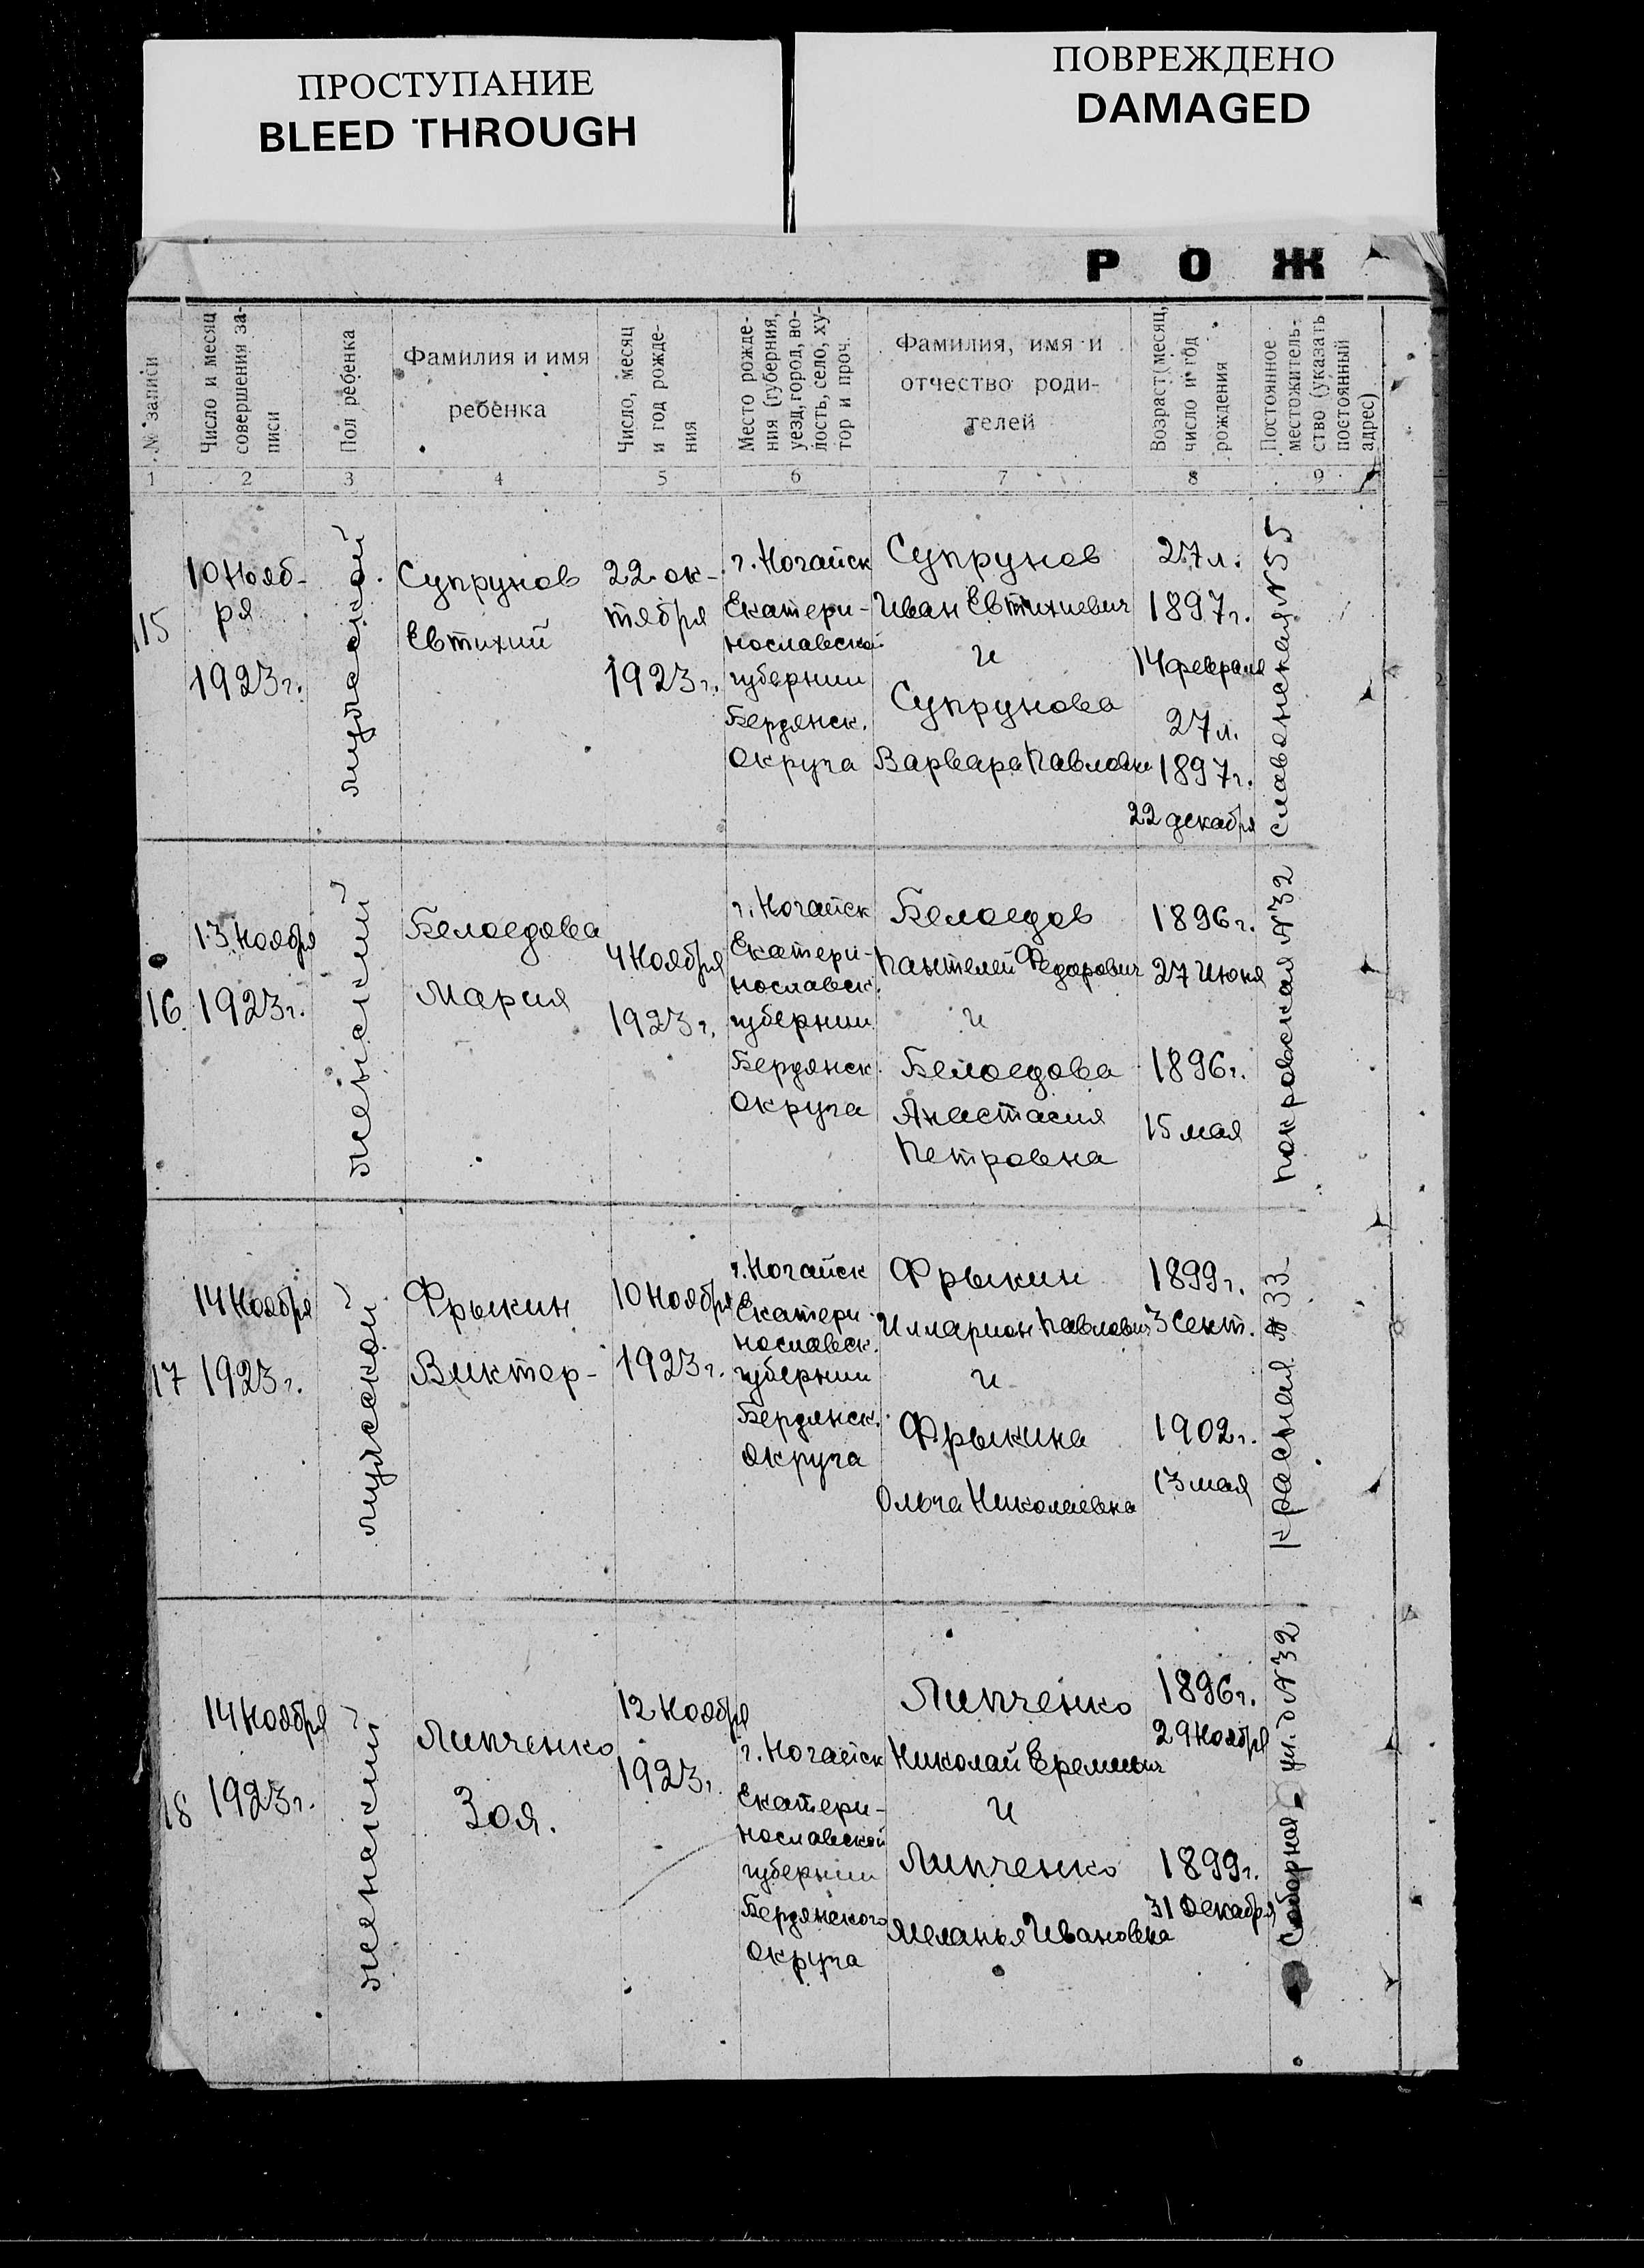 ПРОСТУПАНИЕ
BLEED THROUGH
ПОВРЕЖДЕНО
DAMAGED
РОЖ
№ записи
Число и месяц
совершения за-
писи
Пол ребенка
Фамилия и имя
ребенка
Число, месяц
и год рожде-
ния
Место рожде-
ния (губерния,
уезд, город, во-
лость, село, ху-
тор и проч.
Фамилия, имя и
отчество роди-
телей
Возраст (месяц,
число и год
рождения
Постоянное
местожитель-
ство (указать
постоянный
адрес)
1 2 3 4 5 6 7 8 9
15
10 Нояб-
ря
1923 г.
мужской
Супрунов
Евтихий
22 ок-
тября
1923 г.
г. Ногайск
Екатери-
нославской
губернии
Бердянск.
Округа
Супрунов
Иван Евтихиевич
и
Супрунова
Варвара Павловна
27 л.
1897 г.
14 февраля
27 л.
1897 г.
22 декабря
Славенская № 55
16
13 Ноября
1923 г.
женский
Белоедова
Мария
4 Ноября
1923 г.
г. Ногайск
Екатери-
нославск.
губернии
Бердянск.
Округа
Белоедов
Пантелей Федорович
и
Белоедова
Анастасия
Петровна
1896 г.
27 Июня
1896 г.
15 мая
Покровская № 32
17
14 Ноября
1923 г.
мужской
Фрыкин
Виктор-
10 Ноября
1923 г.
г. Ногайск
Екатери-
нославск.
губернии
Бердянск.
Округа
Фрыкин
Илларион Павлович
и
Фрыкина
Ольга Николаевна
1899 г.
3 Сент.
1902 г.
13 мая
Красная № 33
18
14 Ноября
1923 г.
женский
Липченко
Зоя.
12 Ноября
1923 г.
г. Ногайск
Екатери-
нославской
губернии
Бердянского
Округа
Липченко
Николай Еремеевич
и
Липченко
Меланья Ивановна
1896 г.
29 Ноября
1899 г.
31 Декабря
Соборная ул. д № 32